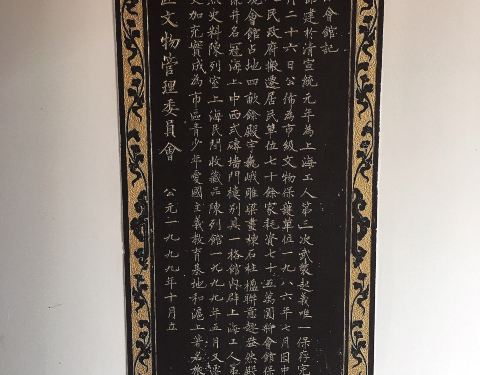 會館記
建於清宣統元年為上海工人第三次武裝起義唯一保存完
月二十六日公佈為市級文物保護單位一九八六年七月因中
民政府搬遷居民單位七十餘家耗資七十五萬圓會館保
會館占地四畝餘殿宇巍峨雕梁畫棟石柱楹聯意趣盎然殿
井名冠海上中西式磚墻門樓別具一格館內辟上海工人第
史料陳列室上海民間收藏品陳列館一九九九年五月又
更加充實成為市區青少年愛國主義教育基地和滬上著名旅
區文物管理委員會 公元一九九九年十月立